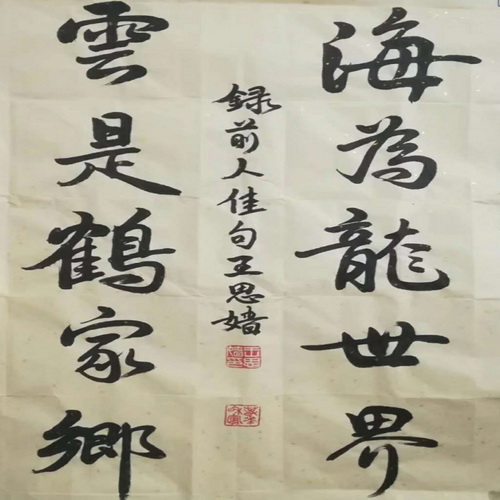 海為龍世界
雲是鶴家鄉
録前人佳句王思嬙